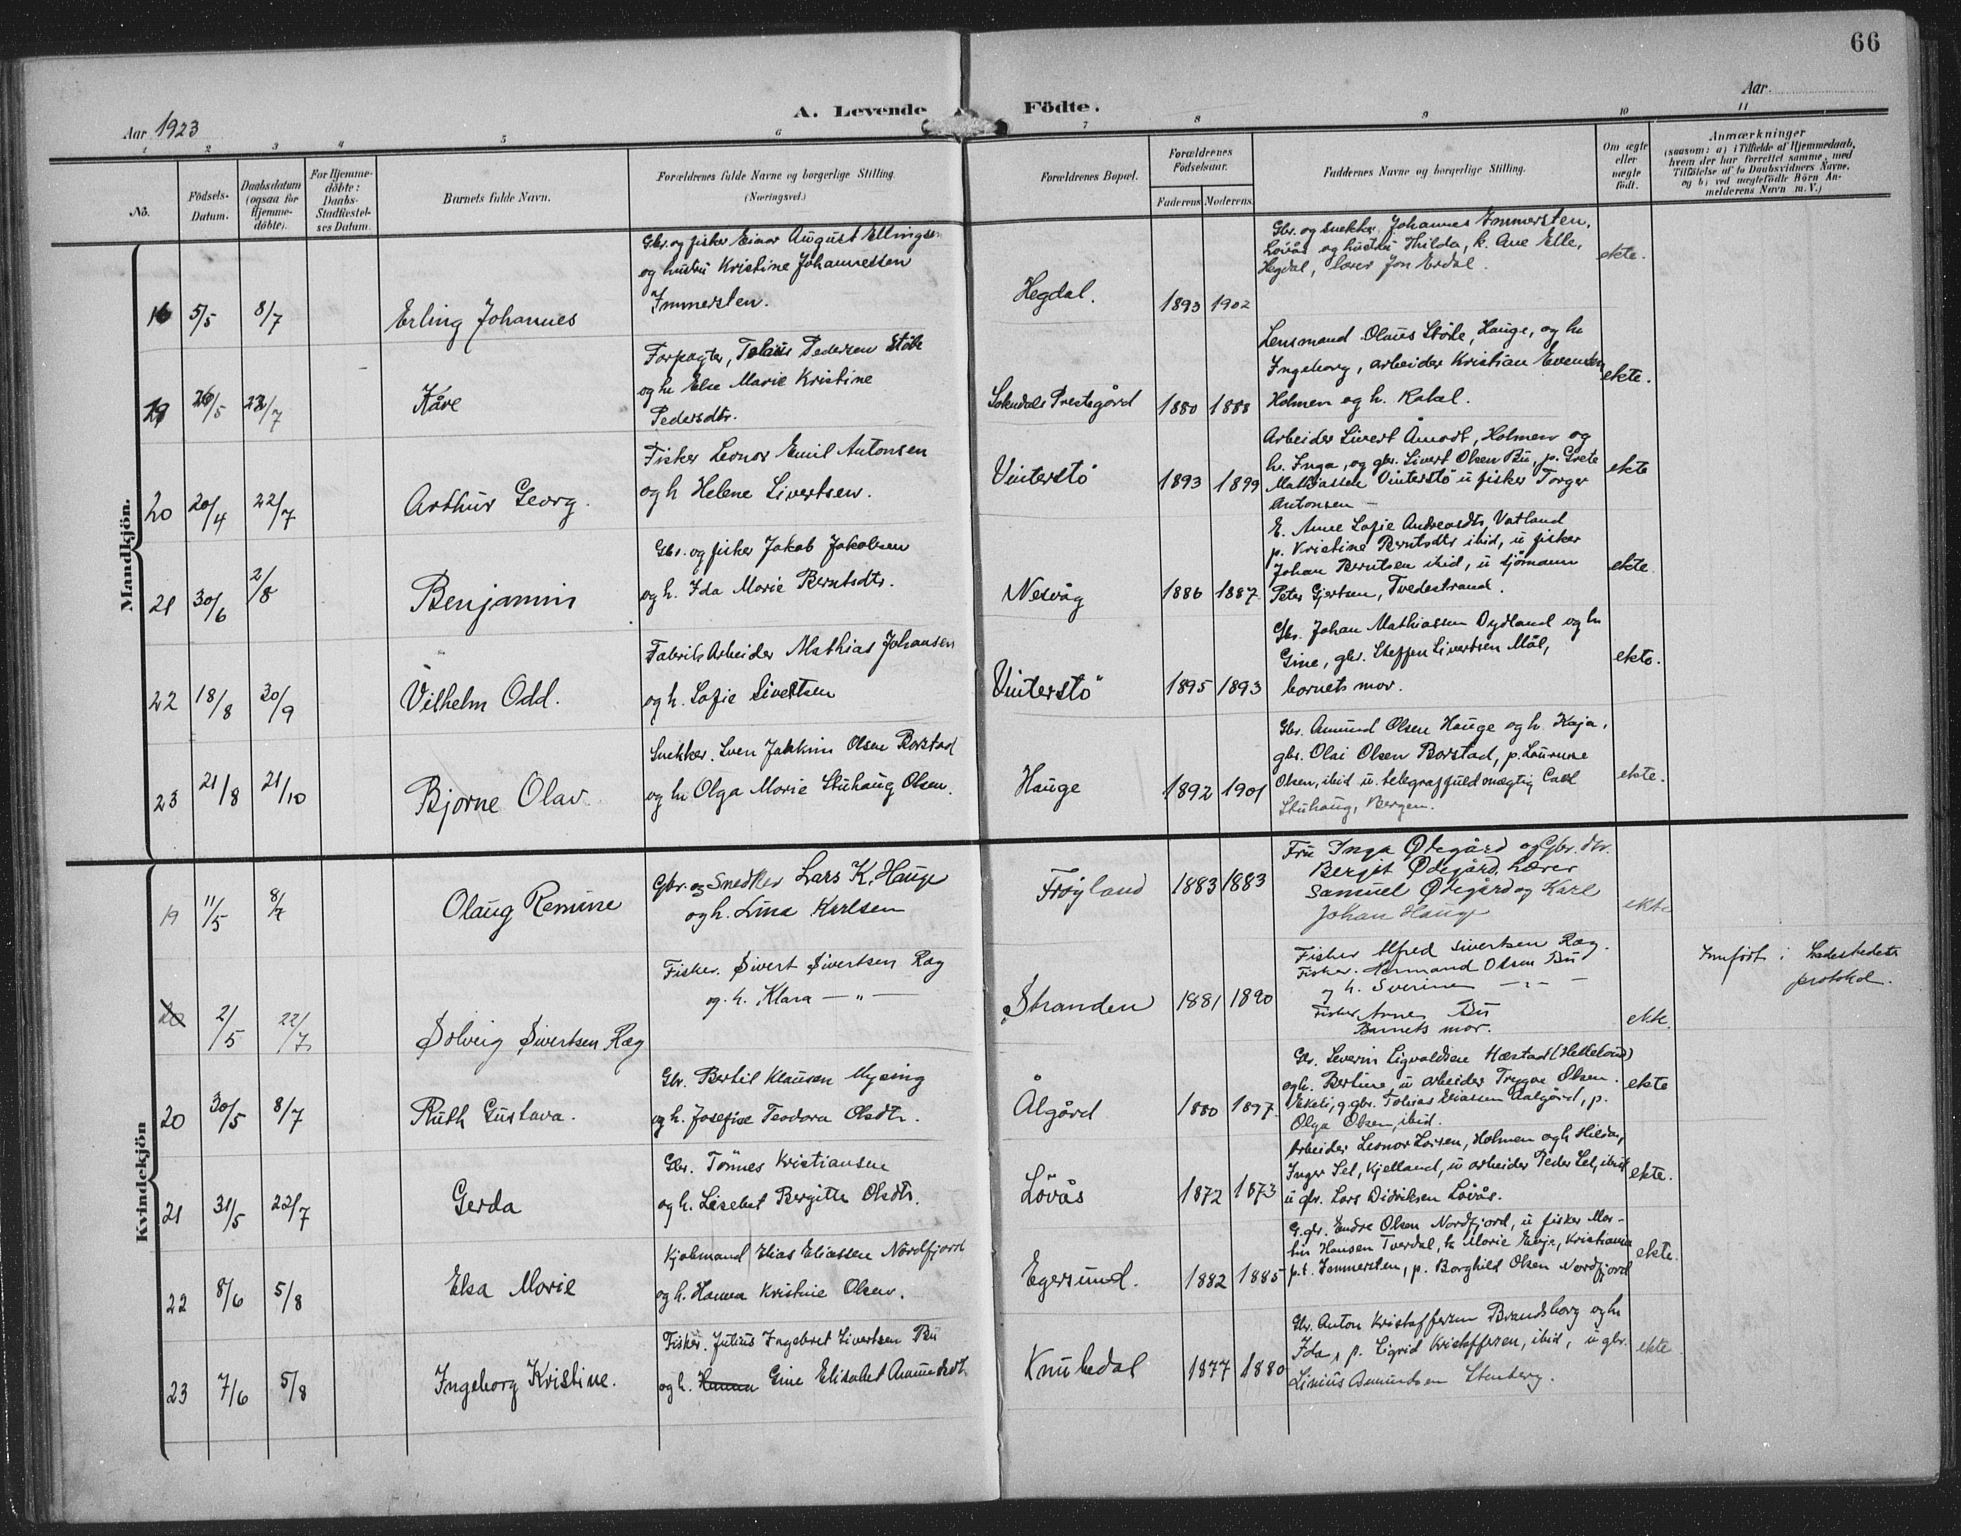 66
A. Levende Födte.
Aar 1923
Aar.
1 2 3 4 5 6 7 8 9 10 11
No.
Födsels-
Datum.
Daabsdatum
(ogsaa for
Hjemme-
döbte).
For Hjemme-
döbte:
Daabs-
Stadfæstel-
ses Datum.
Barnets fulde Navn.
Forældrenes fulde Navne og borgerlige Stilling.
(Næringsvei.)
Forældrenes Bopæl.
Forældrenes
Födselsaar.
Faderens Moderens
Faddernes Navne og borgerlige Stilling.
Om ægte
eller
uægte
födt.
Anmærkninger
(saasom: a) i Tilfælde af Hjemmedaab,
hvem der har forrettet samme, med
Tilföielse af to Daabsvidners Navne,
og b) ved uægtefödte Börn An-
melderens Navn m. V.)
Mandkjön.
5/5 8/7
Erling Johannes
Gbr. og fisker Einar August Ellingsen
og hustru Kristine Johannessen
Immersten.
Hegdal.
1893 1902
Gbr. og snekker Johannes Immersten,
Løvås og hustru Hilda, k. Ane Elle,
Hegdal, lærer Jon Erdal.
ekte.
26/5 22/7
Kåre
Forpagter, Tobias Pedersen Støle
og h. Else Marie Kristine
Pedersdtr.
Sokndals Prestegård
1880 1888
Lensmand Olaus Støle, Hauge, og h.
Ingeborg, arbeider Kristian Evensen
Holmen og h. Rakel.
ekte.
20 20/4 22/7
Arthur Georg.
Fisker Leonor Emil Antonsen
og h Helene Sivertsen.
Vinterstø
1893 1899
Arbeider Sivert Åmodt, Holmen og
h. Inga, og gbr. Sivert Olsen Bu, p. Grete
Mathiassen Vinterstø u fisker Torger
Antonsen
ekte
21 30/6 2/8
Benjamin
Gbr. og fisker Jakob Jakobsen
og h. Ida Marie Berntsdtr.
Nesvåg
1886 1887
E. Anne Sofie Andreasdtr, Vatland
p. Kristine Berntsdtr ibid, u fisker
Johan Berntsen ibid, u sjømann
Peter Gjertsen, Tvedestrand.
ekte.
22 18/8 30/9
Vilhelm Odd.
Fabrik Arbeider Mathias Johansen
og h. Sofie Sivertsen
Vinterstø
1895 1893
Gbr. Johan Mathiassen Dydland og h
Gine, gbr. Steffen Sivertsen Mål,
barnets mor.
ekte.
23 21/8 21/10
Bjarne Olav
Snekker. Sven Jakkim Olsen Barstad
og h. Olga Marie Stuhaug Olsen.
Hauge
1892 1901
Gbr. Amund Olsen Hauge og h. Kaja,
gbr. Olai Olsen Barstad, p. Laurine
Olsen, ibid u. telegraffuldmægtig Carl
Stuhaug, Bergen.
ekte.
Kvindekjön
19 11/5 8/7
Olaug Remine
Gbr. og Snedker Lars K. Hauge
og h. Lina Karlsen
Frøyland
1883 1883
Fru Inga Ødegård og Gbr. dtr.
Bergit Ødegård. Lærer
Samuel Ødegård og Karl
Johan Hauge
ekte
20 2/5 22/7
Solveig Sivertsen Ræg
Fisker. Sivert Sivertsen Ræg
og. h. Klara — „ —
Stranden
1881 1890
Fisker Alfred Sivertsen Ræg.
Fisker. Hermand Olsen Bu
og h. Sverine — „ —
Fisker Arne Bu
Barnets mor.
ekte.
Innført i Ladestedets
protokol.
20 30/5 8/7
Ruth Gustava.
Gbr. Bertil Klausen Mysing
og h. Josefine Teodora Olsdtr.
Ålgård
1880 1897
Gbr. Severin Sigvaldsen Hæstad (Helleland)
og h. Bertine, u arbeider Trygve Olsen
Ekeli, g. gbr. Tobias Eliassen Aalgård, p.
Olga Olsen, ibid.
ekte
21 31/5 22/7
Gerda
Gbr. Tönnes Kristiansen
og h. Lisebet Bergitte Olsdtr.
Lövås
1872 1873
Arbeider Leonor Larsen, Holmen og h Hilda,
Inger Sel, Kjelland, u arbeider Peder Sel, ibid
u gbr. Lars Didriksen Lövås.
ekte.
22 8/6 5/8
Elsa Marie
Kjøbmand Elias Eliassen Nordfjord
og h. Hanna Kristine Olsen.
Egersund.
1882 1885
G. gbr. Endre Olsen Nordfjord, u fisker Mar-
tin Hansen Tverdal, k Marie Eeg, Kristiania
p.t. Immersten, p. Borghild Olsen Nordfjord
ekte.
23 7/6 5/8
Ingeborg Kristine.
Fisker. Julius Ingebret Sivertsen Bu
og h. Hanna Gine Elisabet Aamundsdtr
Knubedal
1877 1880
Gbr. Anton Kristoffersen Brandsberg og h
Ida, p. Sigrid Kristoffersen, ibid, u gbr.
Sinius Amundsen Stenberg.
ekte